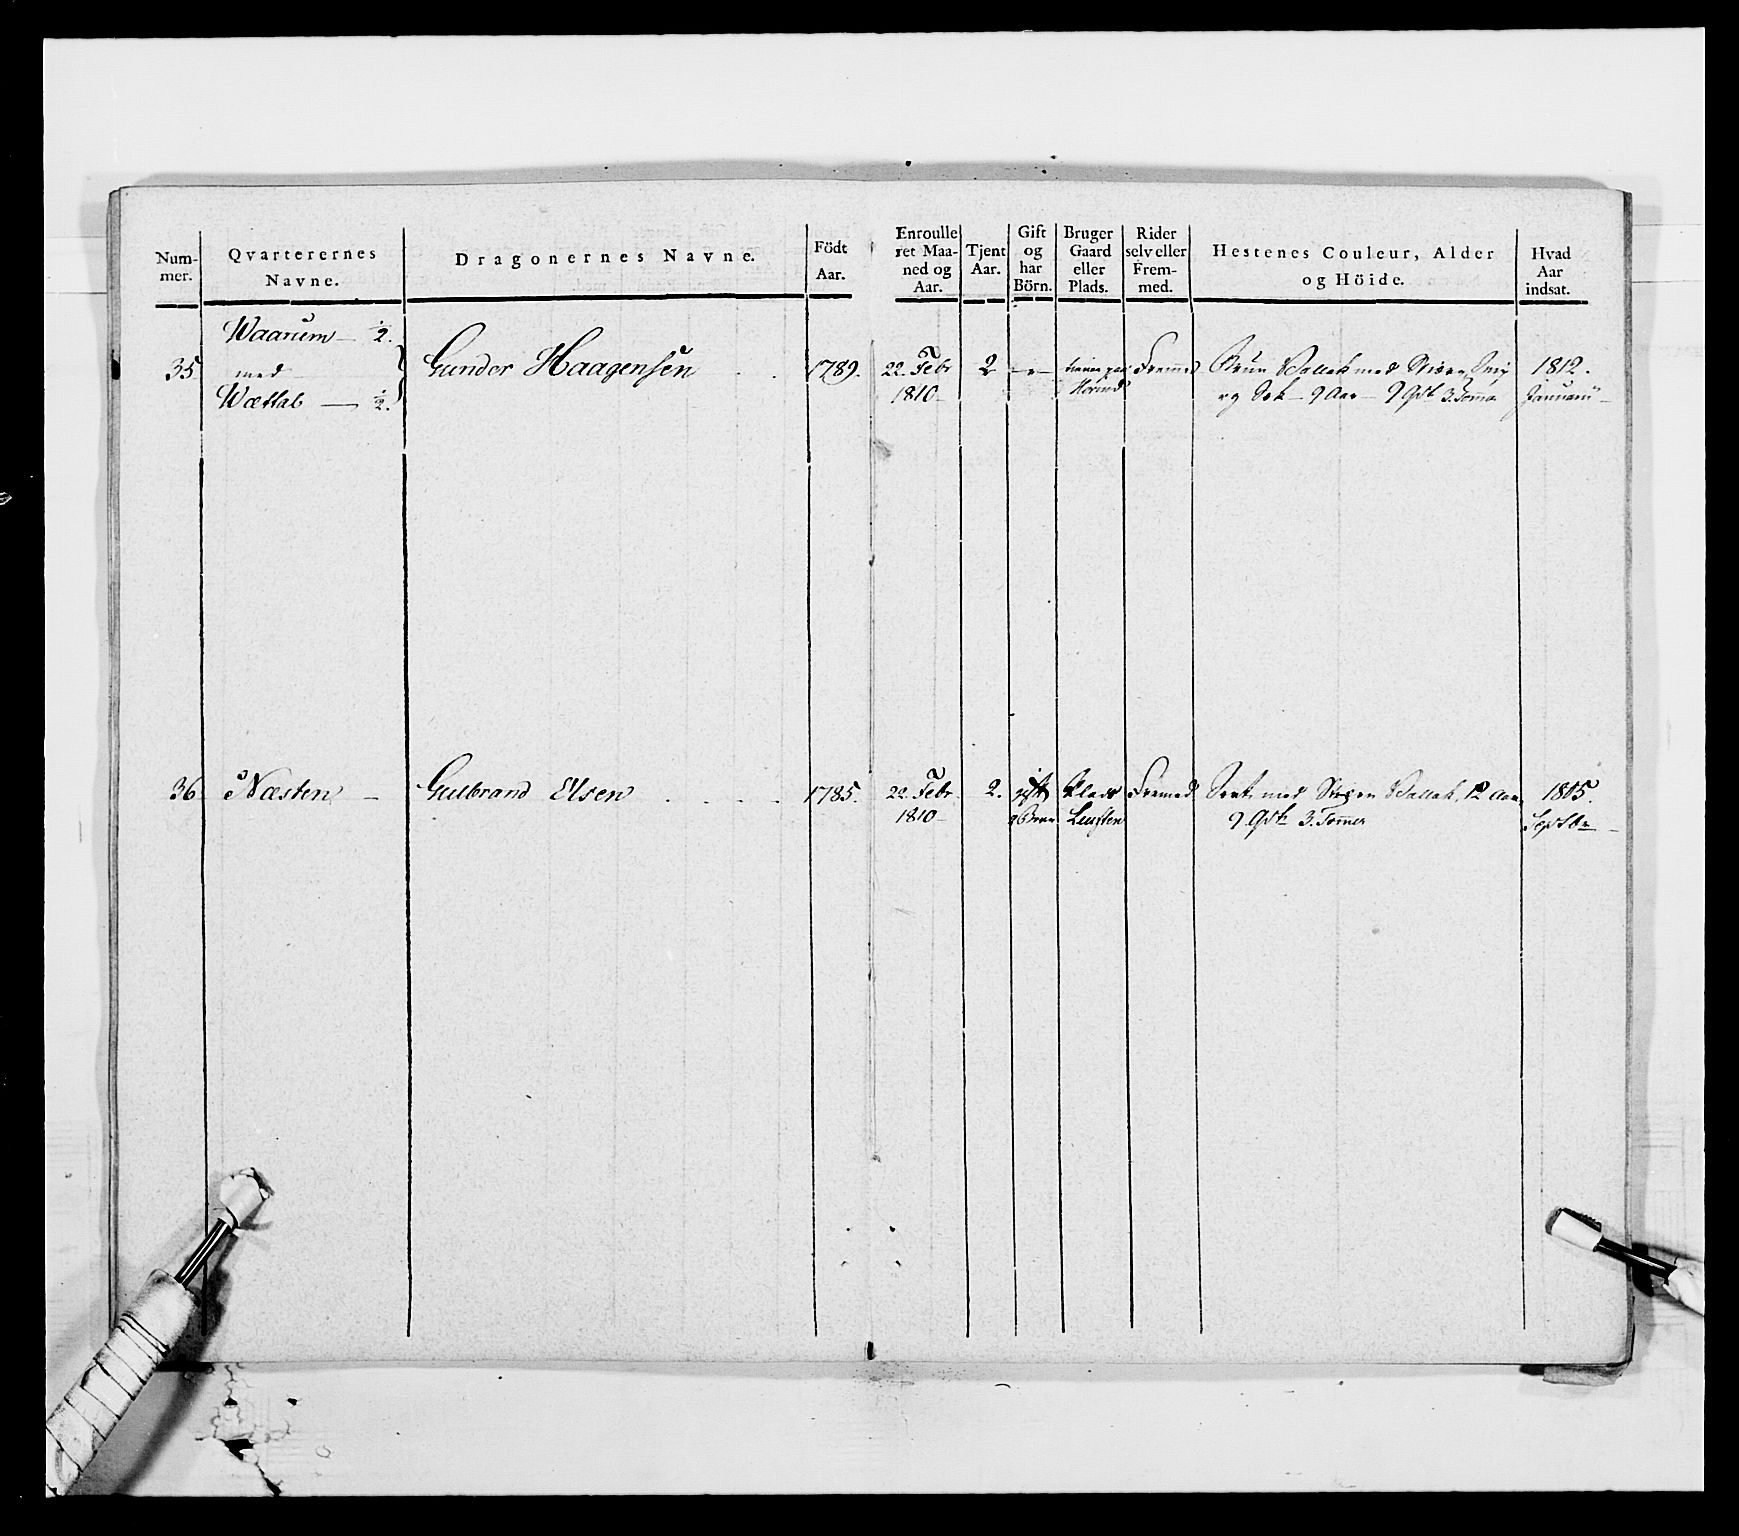 Num-
mer.
Qvarterernes
Navne.
Dragonernes Navne.
Födt
Aar.
Enroulle
ret Maa-
ned og
Aar.
Tjent
Aar.
Gift
og
har
Börn.
Bruger
Gaard
eller
Plads.
Rider
selv eller
Frem-
med.
Hestenes Couleur, Alder
og Höide.
Hvad
Aar
indsat.
Waarum — ½.
35 med
Wættal — ½.
Gunder Haagensen
1789.
22. Febr
1810
2
Fremmed
Brun Vallak med Stiærn
og Sok — 9 Aar — 9 Qvt 3. Tommer
1812.
Januarii
36. Næsten —
Gulbrand Elsen . . . .
1785.
22. Febr.
1810
2.
gift
Plads
Fremed
Sort med Stiærn Vallak, 12 Aar
9 Qvt 3. Tommer
1805.
Septbr